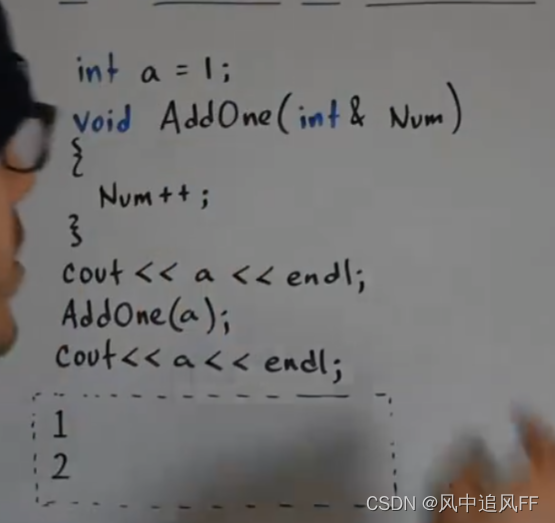 int a = 1;
void AddOne(int& Num)
{
Num++;
}
cout << a << endl;
AddOne(a);
cout<< a << endl;
1
2
CSDN @风中追风FF